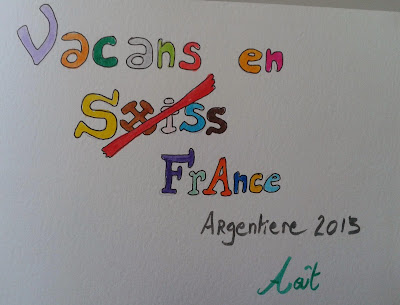 Vacans en
Swiss
FrAnce
ArgentIere 2013
Août